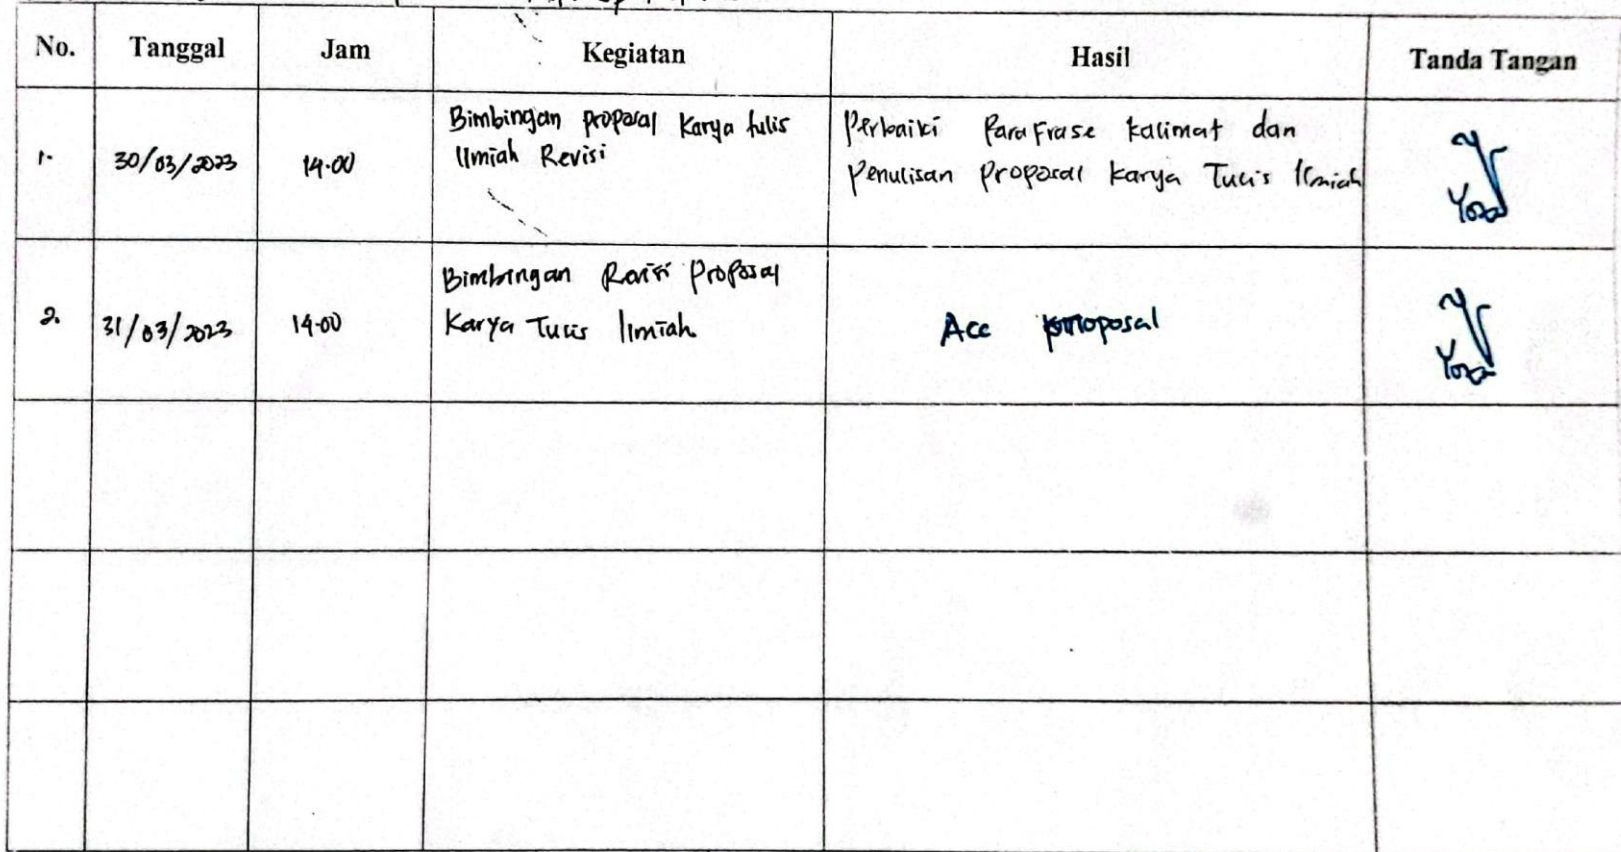 No. Tanggal Jam Kegiatan Hasil Tanda Tangan
1. 30/03/2023 14.00
Bimbingan proposal Karya tulis
Ilmiah Revisi
Perbaiki Parafrase kalimat dan
Penulisan Proposal Karya Tulis Ilmiah
Yosa
2. 31/03/2023 14.00
Bimbingan Revisi Proposal
Karya Tulis Ilmiah
Acc proposal
Yosa